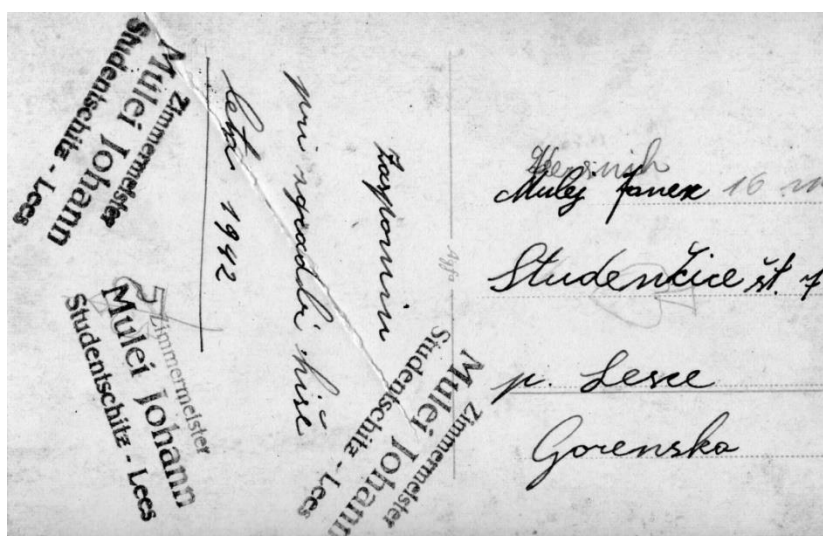 Zimmermeister
Mulei Johann
Studentschitz - Lees
Zimmermeister
Mulei Johann
Studentschitz - Lees
Zimmermeister
Mulei Johann
Studentschitz - Lees
zaspomin
pri ngraddi hiše
leta 1942
Agfa
Mulej Janez 16
Studenčice št. 7
p. Lesce
Gorensko